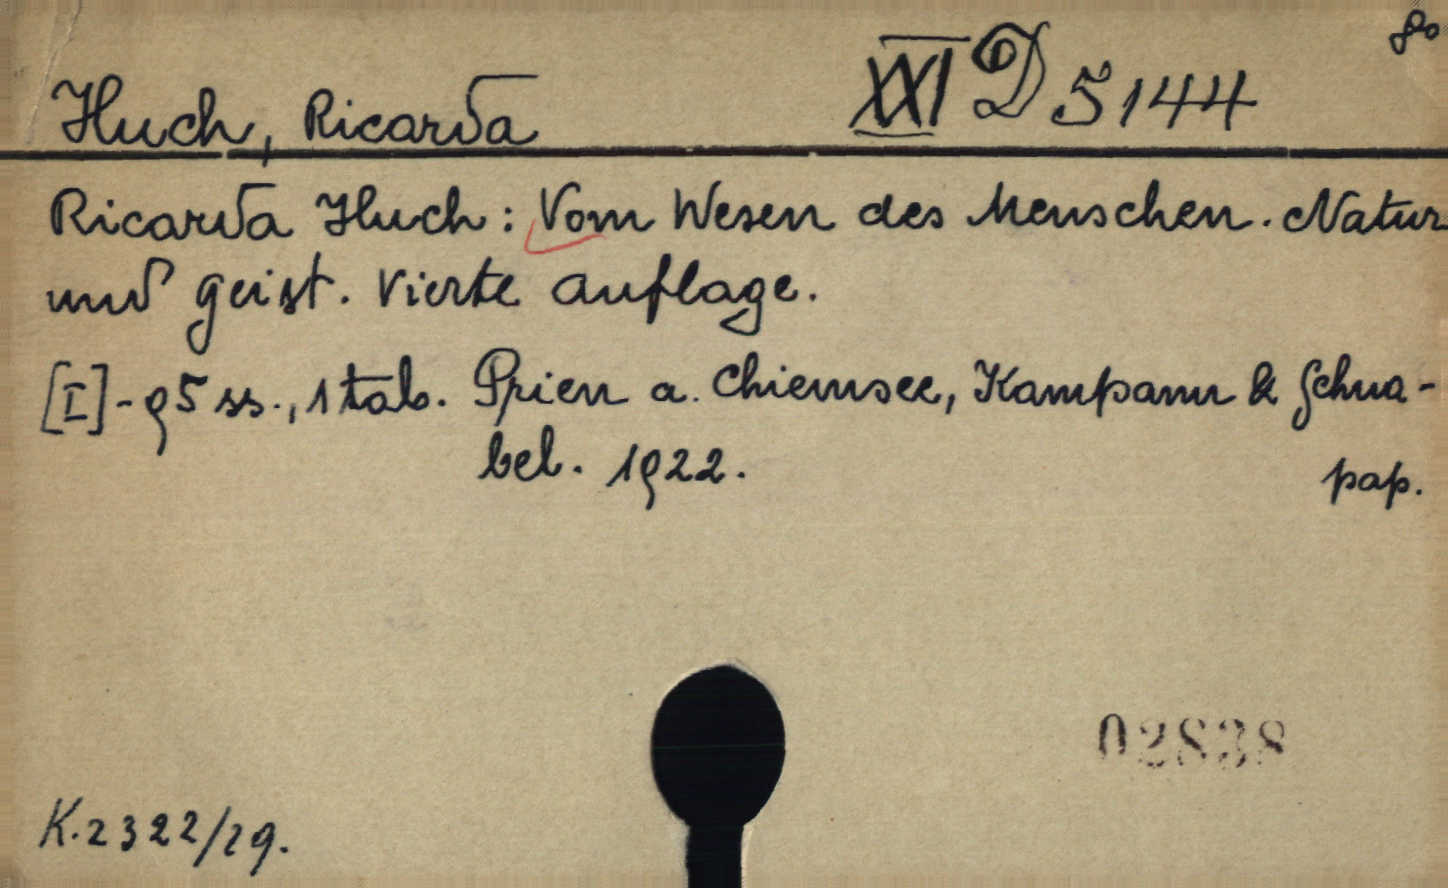 8°
Huch, Ricarda
XXI D 5144
Ricarda Huch: Vom Wesen des Menschen. Natur
und Geist. Vierte Auflage.
[I]-95 ss., 1 tab. Prien a. Chiemsee, Kampann & Schna-
bel. 1922.
pap.
02838
K. 2322/29.